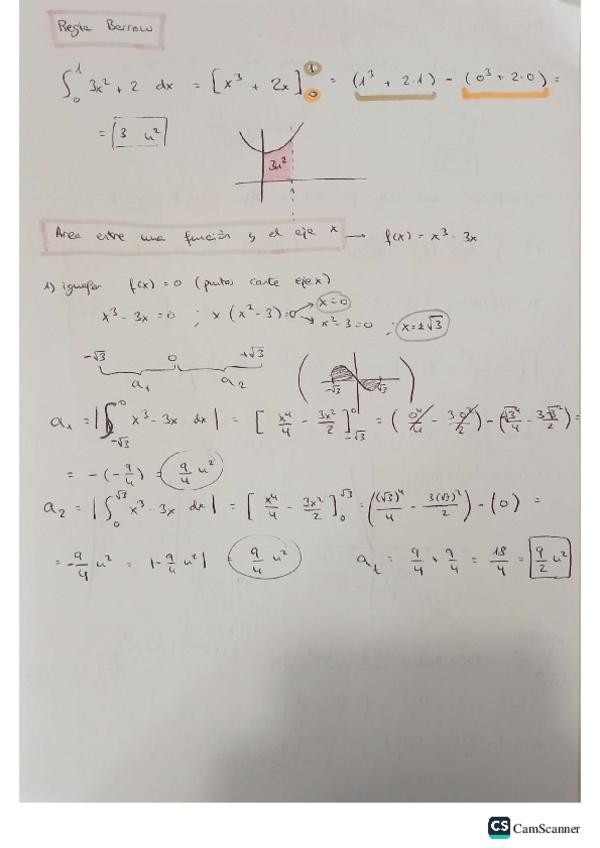 Regla Barrow
∫₀¹ 3x² + 2 dx = [x³ + 2x]₀¹ = (1³ + 2·1) - (0³ + 2·0) =
= 3 u²
3u²
Area entre una función y el eje x → f(x) = x³ - 3x
1) igualar f(x) = 0 (puntos corte eje x)
x³ - 3x = 0 ; x (x² - 3) = 0 x = 0
x² - 3 = 0 ; x = ±√3
-√3 0 +√3
a₁ a₂
-√3 √3
a₁ = |∫₋√3⁰ x³ - 3x dx| = [x⁴/4 - 3x²/2]₋√3⁰ = (0⁴/4 - 3·0²/2) - (√3⁴/4 - 3√3²/2) =
= -(-9/4) = 9/4 u²
a₂ = |∫₀√3 x³ - 3x dx| = [x⁴/4 - 3x²/2]₀√3 = ((√3)⁴/4 - 3(√3)²/2) - (0) =
= -9/4 u² = |-9/4 u²| = 9/4 u² aₜ = 9/4 + 9/4 = 18/4 = 9/2 u²
CS CamScanner